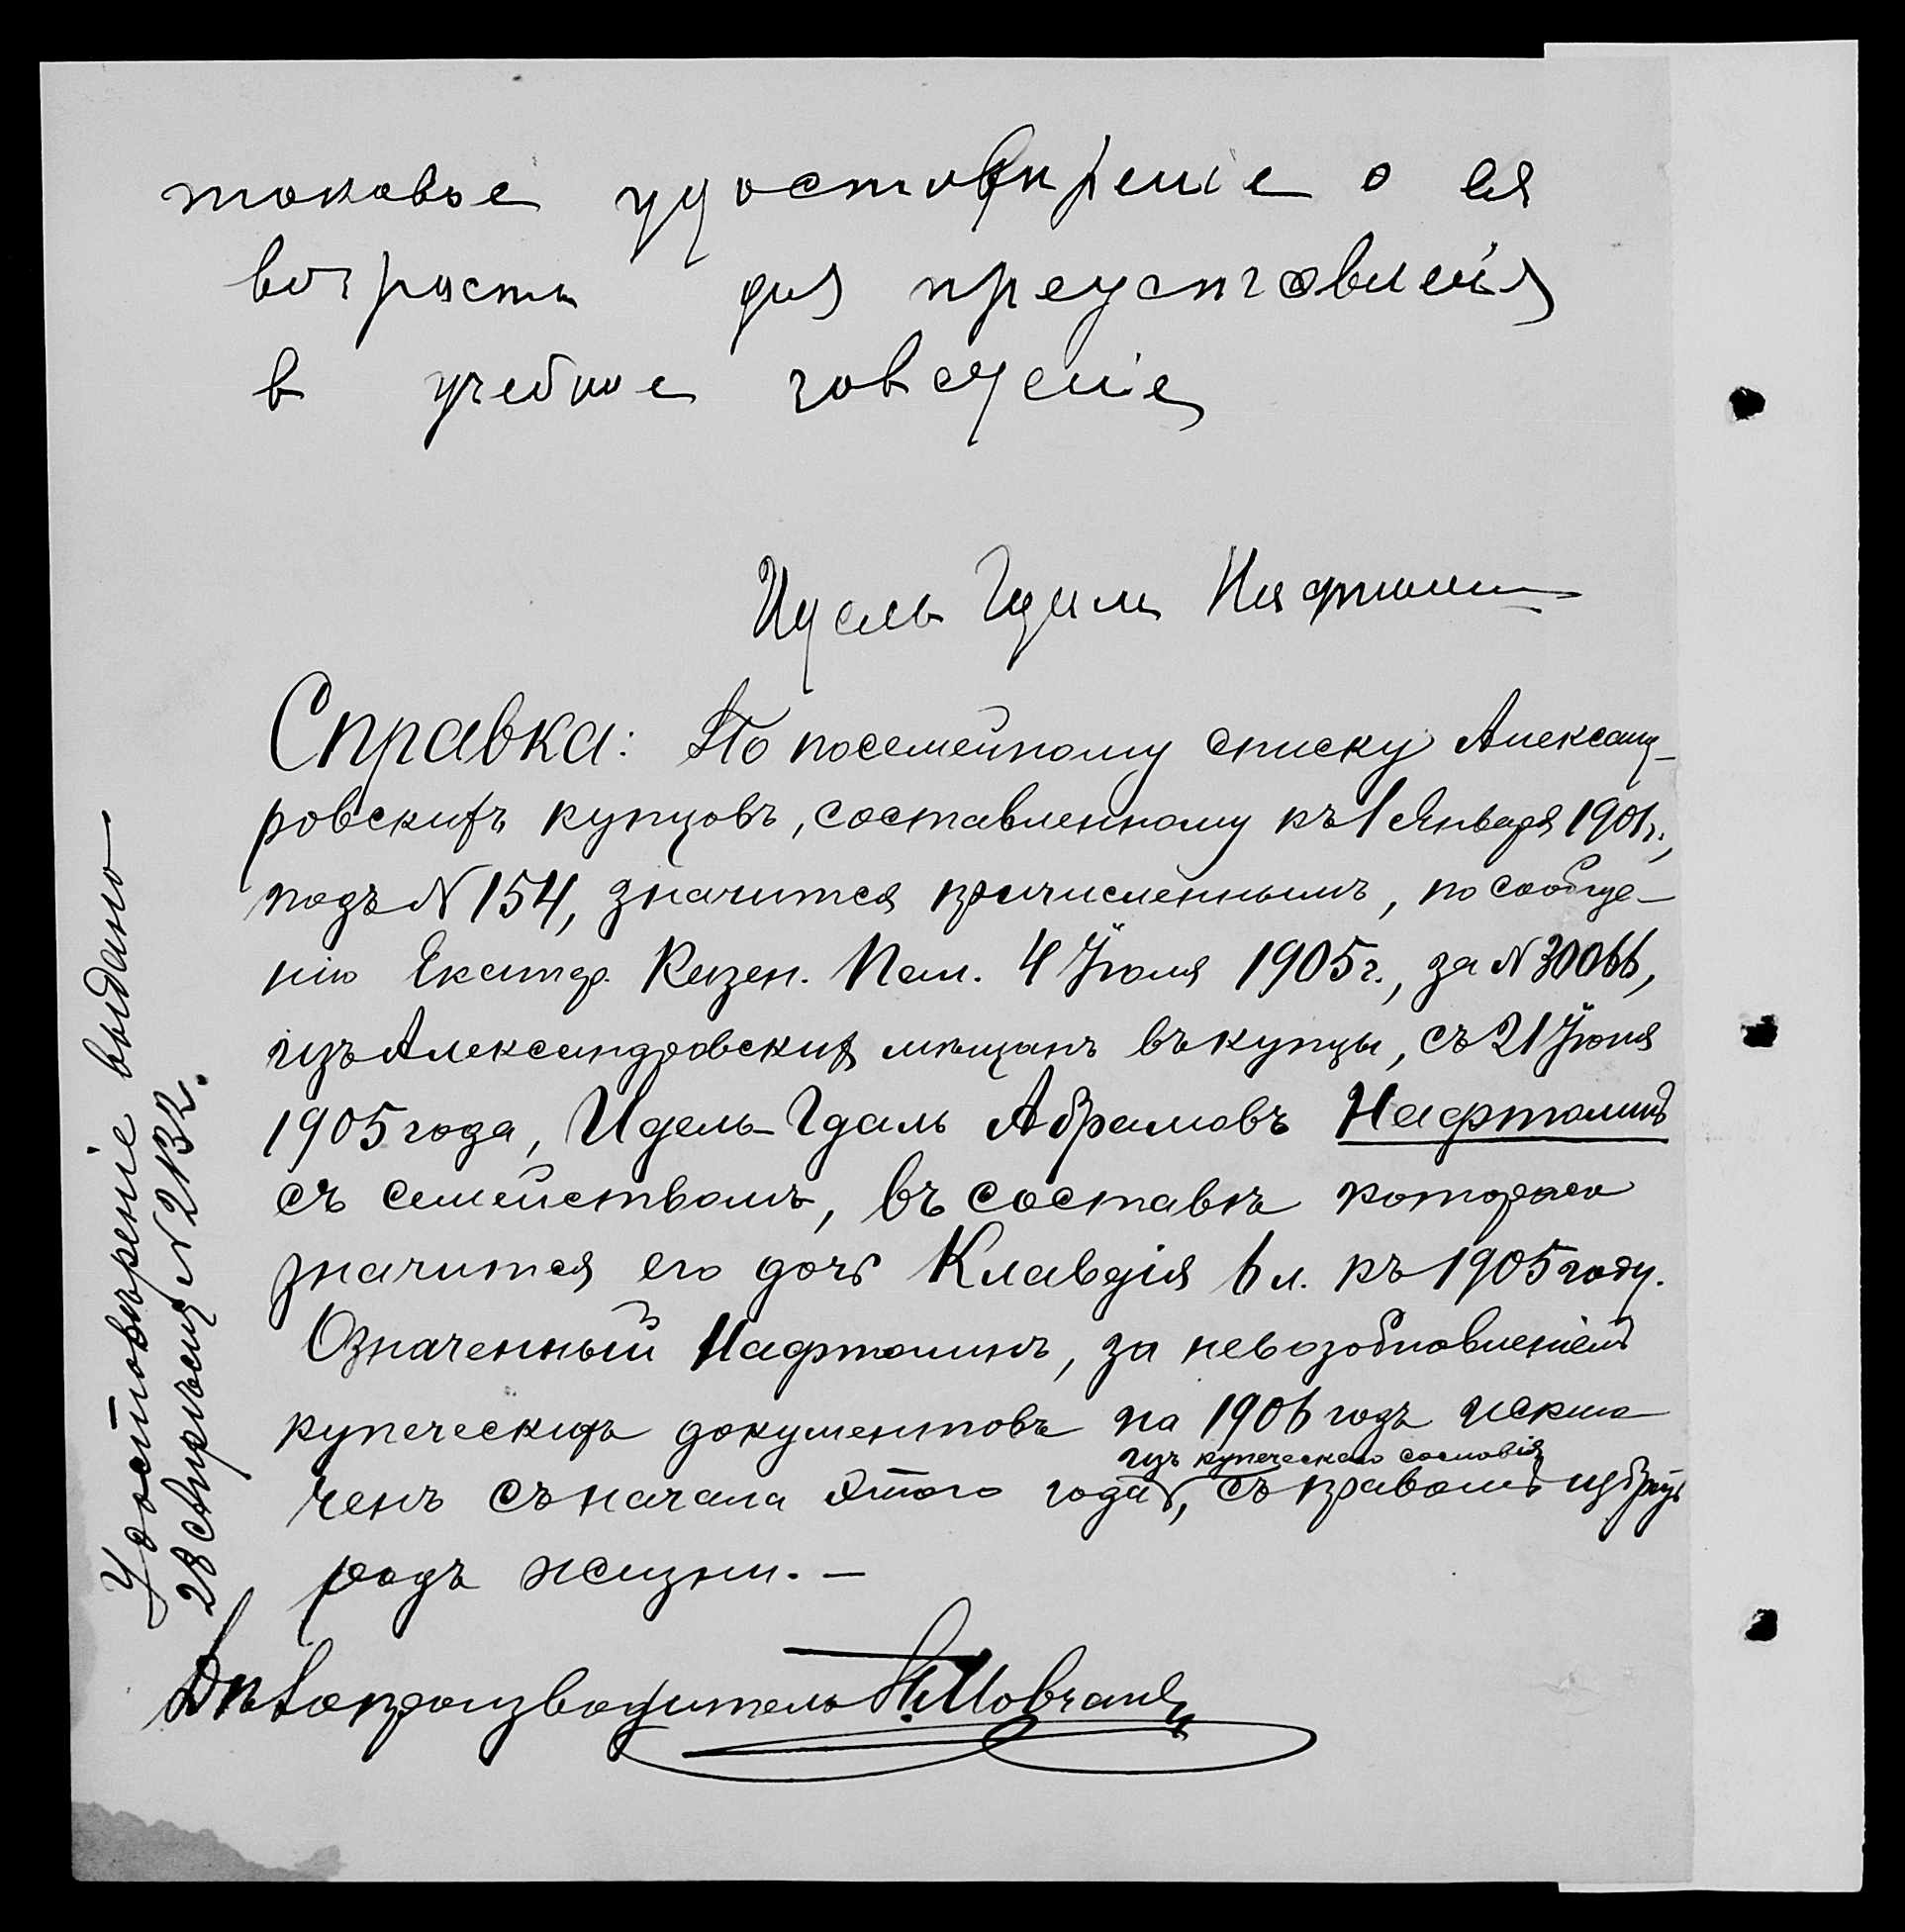 таковое удостовѣреніе о ея
возрастѣ для представленія
в учебное заведеніе
Идель Гдаль Нафталинъ
Справка: По посемейному списку Александ-
ровскихъ купцовъ, составленному къ 1 Января 1901 г.,
подъ № 154, значится причисленнымъ, по сообще-
нію Екатер. Казен. Пал. 4 Іюля 1905 г., за № 30066,
изъ Александровскихъ мѣщанъ въ купцы, съ 21 Іюня
1905 года, Идель-Гдаль Абрамовъ Нафталинъ
съ семействомъ, въ составѣ котораго
значится его дочь Клавдія 6 л. къ 1905 году.
Означенный Нафталинъ, за невозобновленіемъ
купеческихъ документовъ на 1906 годъ исклю
ченъ съ начала этого года, изъ купеческаго сословія съ правомъ избрать
родъ жизни. —
Дѣлопроизводитель Н. Мовчанъ
Удостовѣреніе выдано
28 Апрѣля № 2132.